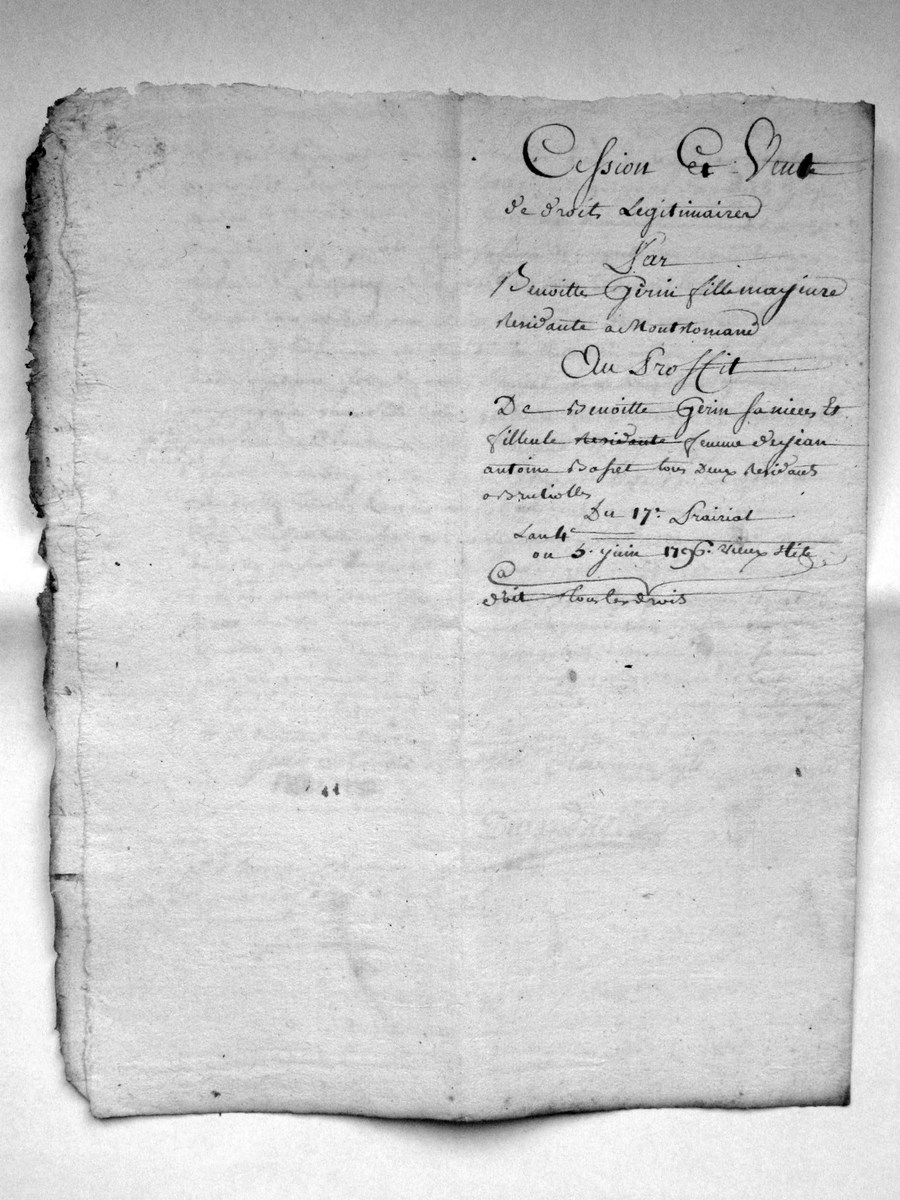 Cession Et Vente
de droits Legitimaires
Par
Benoitte Gerin fille majeure
Residante a Montromand
Au Proffit
De Benoitte Gerin sa niece Et
filleule Residante femme de jean
antoine Basset tous deux Residants
a Brulioles
Du 17e. Prairial
L'an 4e
ou 5. juin 1796. vieux stile
doit tous les droits